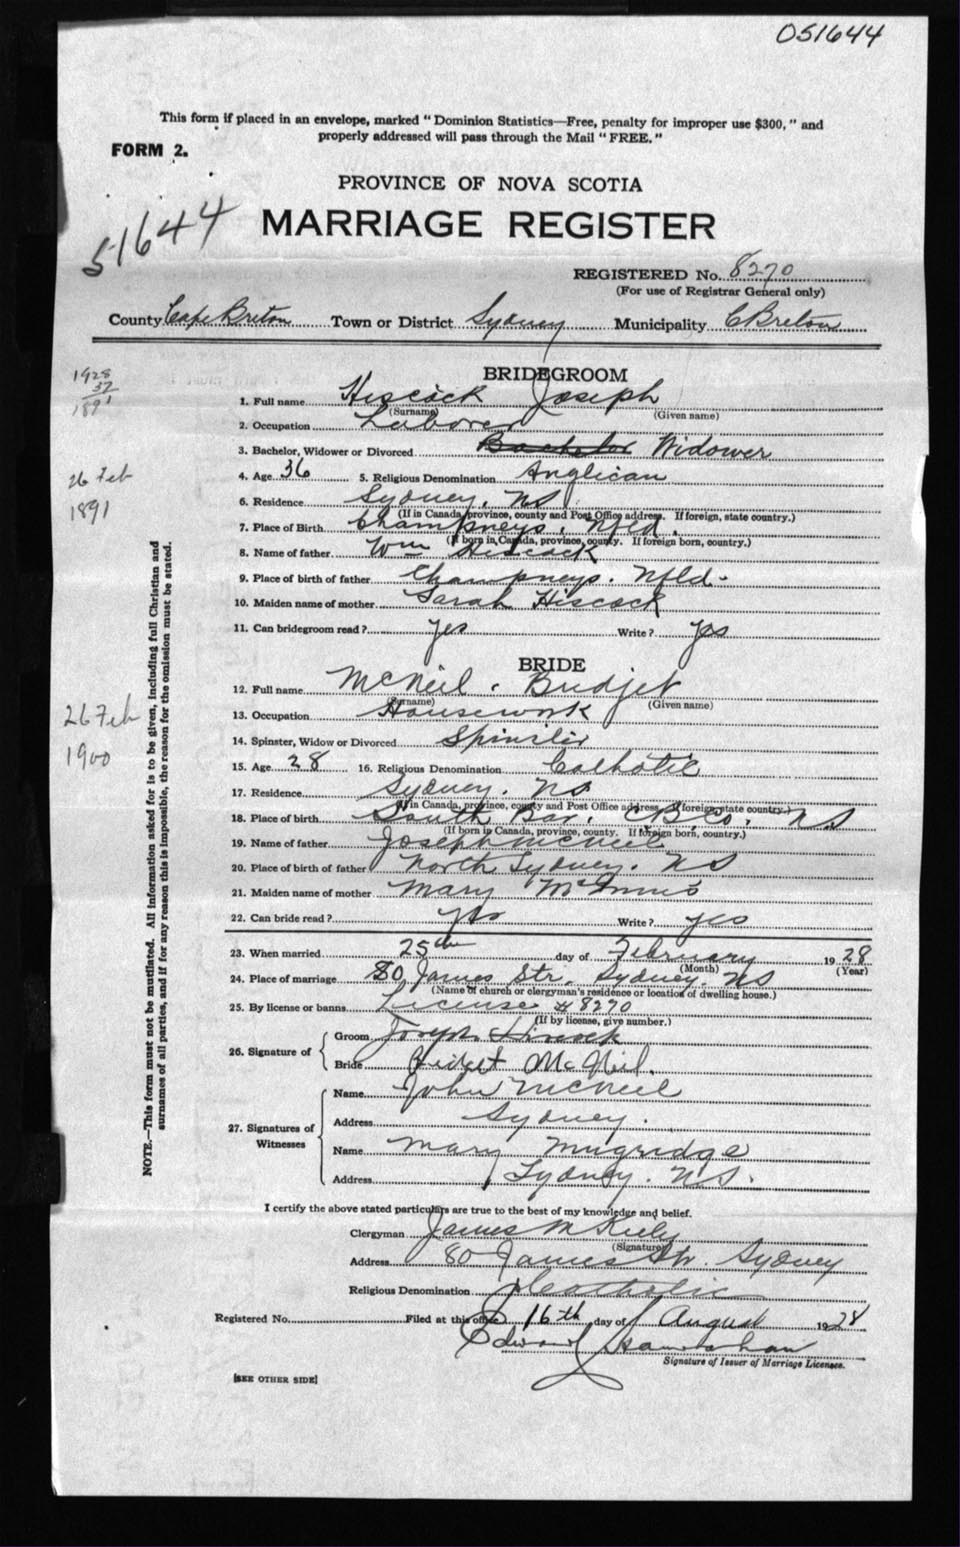 051644
This form if placed in an envelope, marked "Dominion Statistics—Free, penalty for improper use $300," and
properly addressed will pass through the Mail "FREE."
FORM 2.
PROVINCE OF NOVA SCOTIA
51644
MARRIAGE REGISTER
REGISTERED No. 8270
(For use of Registrar General only)
County Cape Breton Town or District Sydney Municipality C Breton
1928
37
1891
BRIDEGROOM
1. Full name Hiscock Joseph
(Surname) (Given name)
2. Occupation Laborer
3. Bachelor, Widower or Divorced Bachelor Widower
4. Age 36 5. Religious Denomination Anglican
26 Feb
1891
6. Residence Sydney, NS
(If in Canada, province, county and Post Office address. If foreign, state country.)
7. Place of Birth Champneys, Nfld.
(If born in Canada, province, county. If foreign born, country.)
8. Name of father Wm Hiscock
9. Place of birth of father Champneys. Nfld-
10. Maiden name of mother Sarah Hiscock
11. Can bridegroom read? yes Write? yes
NOTE.—This form must not be mutilated. All information asked for is to be given, including full Christian and
surnames of all parties, and if for any reason this is impossible, the reason for the omission must be stated.
BRIDE
12. Full name McNeil. Bridjet
(Surname) (Given name)
13. Occupation Housework
26 Feb
1900
14. Spinster, Widow or Divorced Spinster
15. Age 28 16. Religious Denomination Catholic
17. Residence Sydney. NS
(If in Canada, province, county and Post Office address. If foreign, state country.)
18. Place of birth South Bar, CB Co, NS
(If born in Canada, province, county. If foreign born, country.)
19. Name of father Joseph McNeil
20. Place of birth of father North Sydney. NS
21. Maiden name of mother Mary McInnis
22. Can bride read? yes Write? yes
23. When married 25th day of February 1928
(Month) (Year)
24. Place of marriage 80 James Str, Sydney, NS
(Name of church or clergyman's residence or location of dwelling house.)
25. By license or banns License # 8270
(If by license, give number.)
26. Signature of
Groom Joseph Hiscock
Bride Bridget McNeil.
27. Signatures of Witnesses
Name John McNeil
Address Sydney.
Name Mary Mugridge
Address Sydney. NS.
I certify the above stated particulars are true to the best of my knowledge and belief.
Clergyman James M Kiely
(Signature)
Address 80 James Str. Sydney
Religious Denomination Catholic
Registered No. Filed at this office 16th day of August 1928
Edward
Signature of Issuer of Marriage Licenses.
[SEE OTHER SIDE]